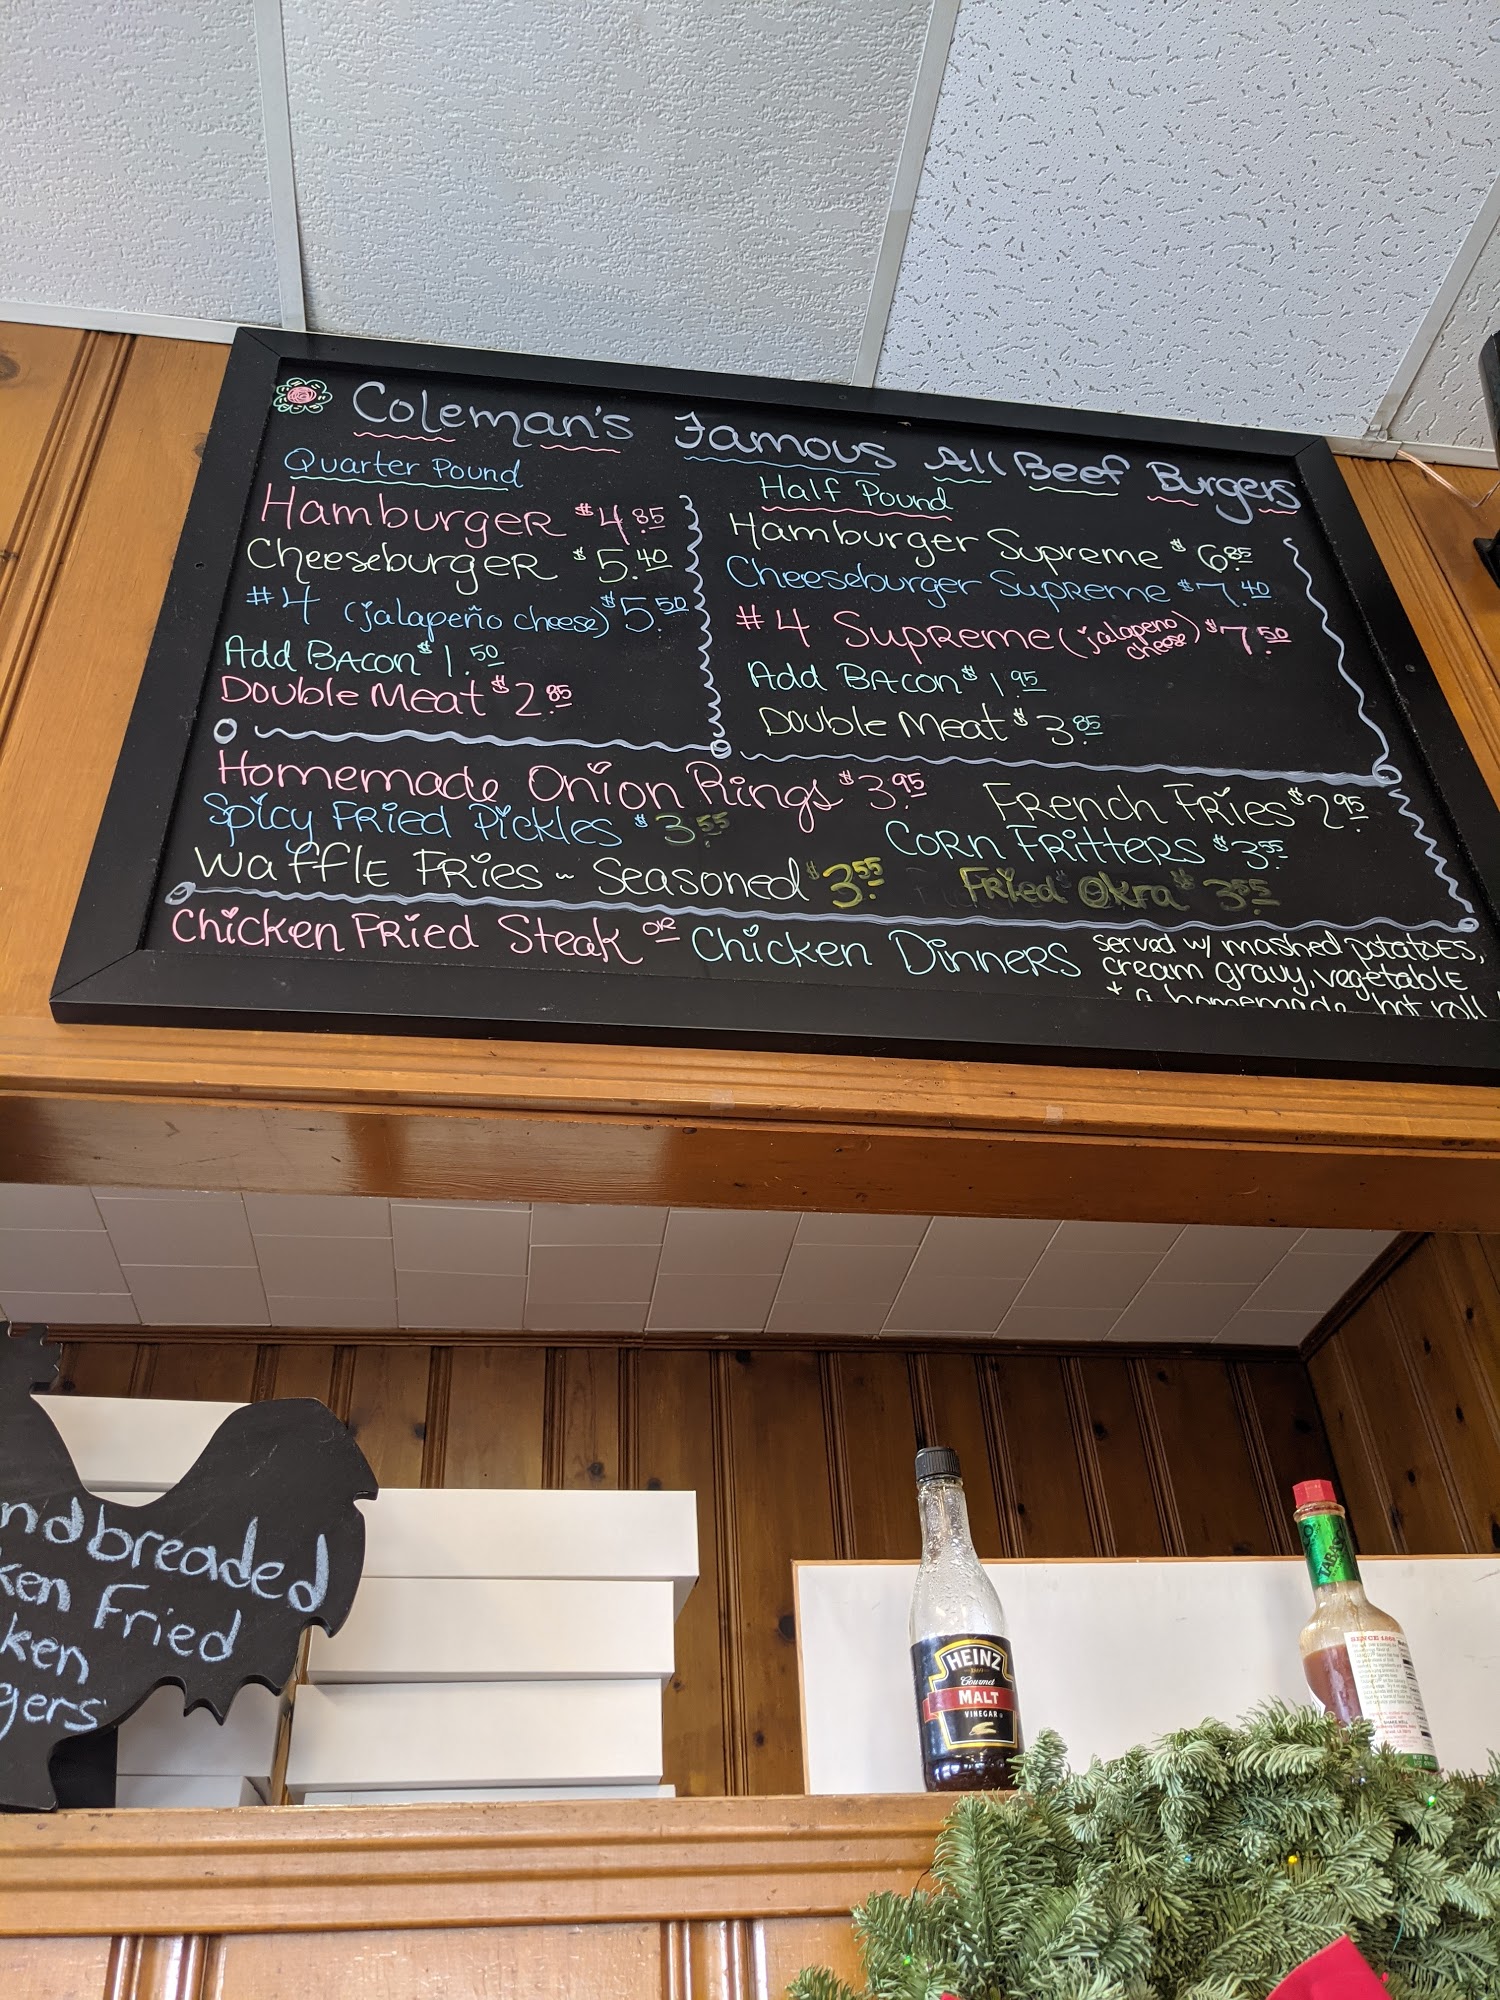 Coleman's Famous All Beef Burgers
Quarter Pound
Hamburger $4.85
Cheeseburger $5.40
#4 (jalapeño cheese) $5.50
Add Bacon $1.50
Double Meat $2.85
Half Pound
Hamburger Supreme $6.85
Cheeseburger Supreme $7.40
#4 Supreme (jalapeno cheese) $7.50
Add Bacon $1.95
Double Meat $3.85
Homemade Onion Rings $3.95
Spicy Fried Pickles $3.55
Waffle Fries ~ Seasoned $3.55
French Fries $2.95
Corn Fritters $3.55
Fried Okra $3.55
Chicken Fried Steak or Chicken Dinners
served w/ mashed potatoes,
cream gravy, vegetable
+ a homemade hot roll
ndbreaded
ken Fried
ken
gers
HEINZ
Gourmet
MALT
VINEGAR
TABASCO
SINCE 1868